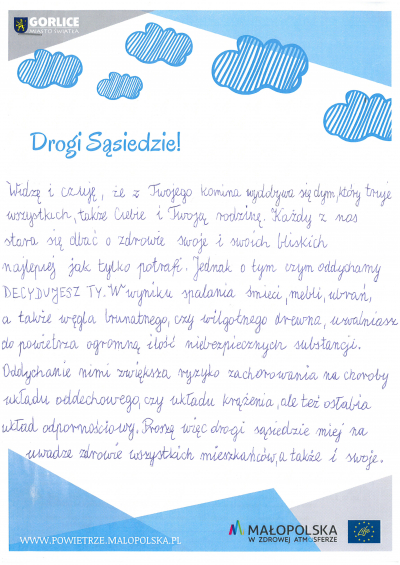 GORLICE
MIASTO ŚWIATŁA
Drogi Sąsiedzie!
Widzę i czuję, że z Twojego komina wydobywa się dym, który truje
wszystkich, także Ciebie i Twoją rodzinę. Każdy z nas
stara się dbać o zdrowie swoje i swoich bliskich
najlepiej jak tylko potrafi. Jednak o tym czym oddychamy
DECYDUJESZ TY. W wyniku spalania śmieci, mebli, ubrań,
a także węgla brunatnego, czy wilgotnego drewna, uwalniasz
do powietrza ogromną ilość niebezpiecznych substancji.
Oddychanie nimi zwiększa ryzyko zachorowania na choroby
układu oddechowego, czy układu krążenia, ale też osłabia
układ odpornościowy. Proszę więc drogi sąsiedzie miej na
uwadze zdrowie wszystkich mieszkańców, a także i swoje.
WWW.POWIETRZE.MALOPOLSKA.PL
MAŁOPOLSKA
W ZDROWEJ ATMOSFERZE
Life